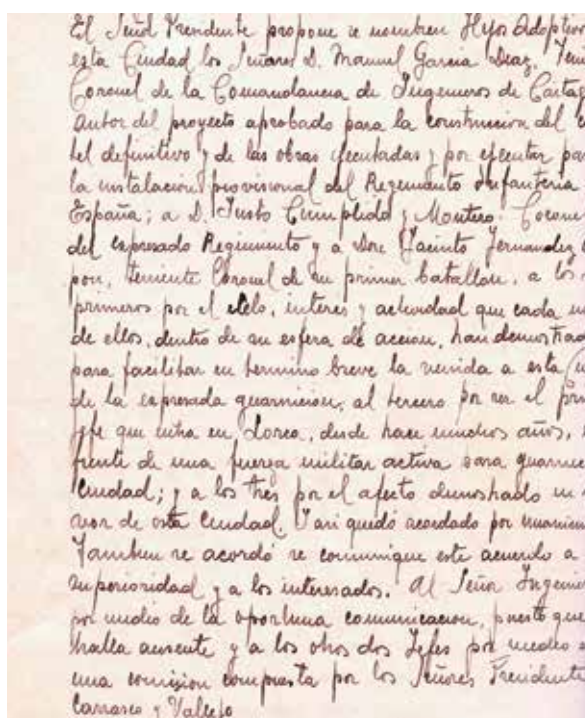 El Señor Presidente propone se nombren Hijos Adoptivo
esta Ciudad los Señores D. Manuel Garcia Diaz. Teni
Coronel de la Comandancia de Ingenieros de Cartag
autor del proyecto aprobado para la construccion del C
tel definitivo y de las obras ejecutadas y por ejecutar par
la instalacion provisional del Regimiento Infanteria
España; a D. Justo Cumplido y Montero. Corone
del expresado Regimiento y a Don Jacinto Fernandez
pon, teniente Coronel de su primer batallon, a los
primeros por el celo, interes y actividad que cada u
de ellos, dentro de su esfera de accion, han demostrad
para facilitar en termino breve la venida a esta Ciu
de la expresada guarnicion, al tercero por ser el prim
jefe que entra en Lorca, desde hace muchos años, 
frente de una fuerza militar activa para guarnec
Ciudad; y a los tres por el afecto demostrado en
vor de esta Ciudad. Y asi quedó acordado por unanim
Tambien se acordó se comunique este acuerdo a
superioridad y a los interesados. Al Señor Ingenie
por medio de la oportuna comunicacion, puesto que
halla ausente y a los otros dos Jefes por medio d
una comision compuesta por los Señores Presidente
Carrasco y Vallejo